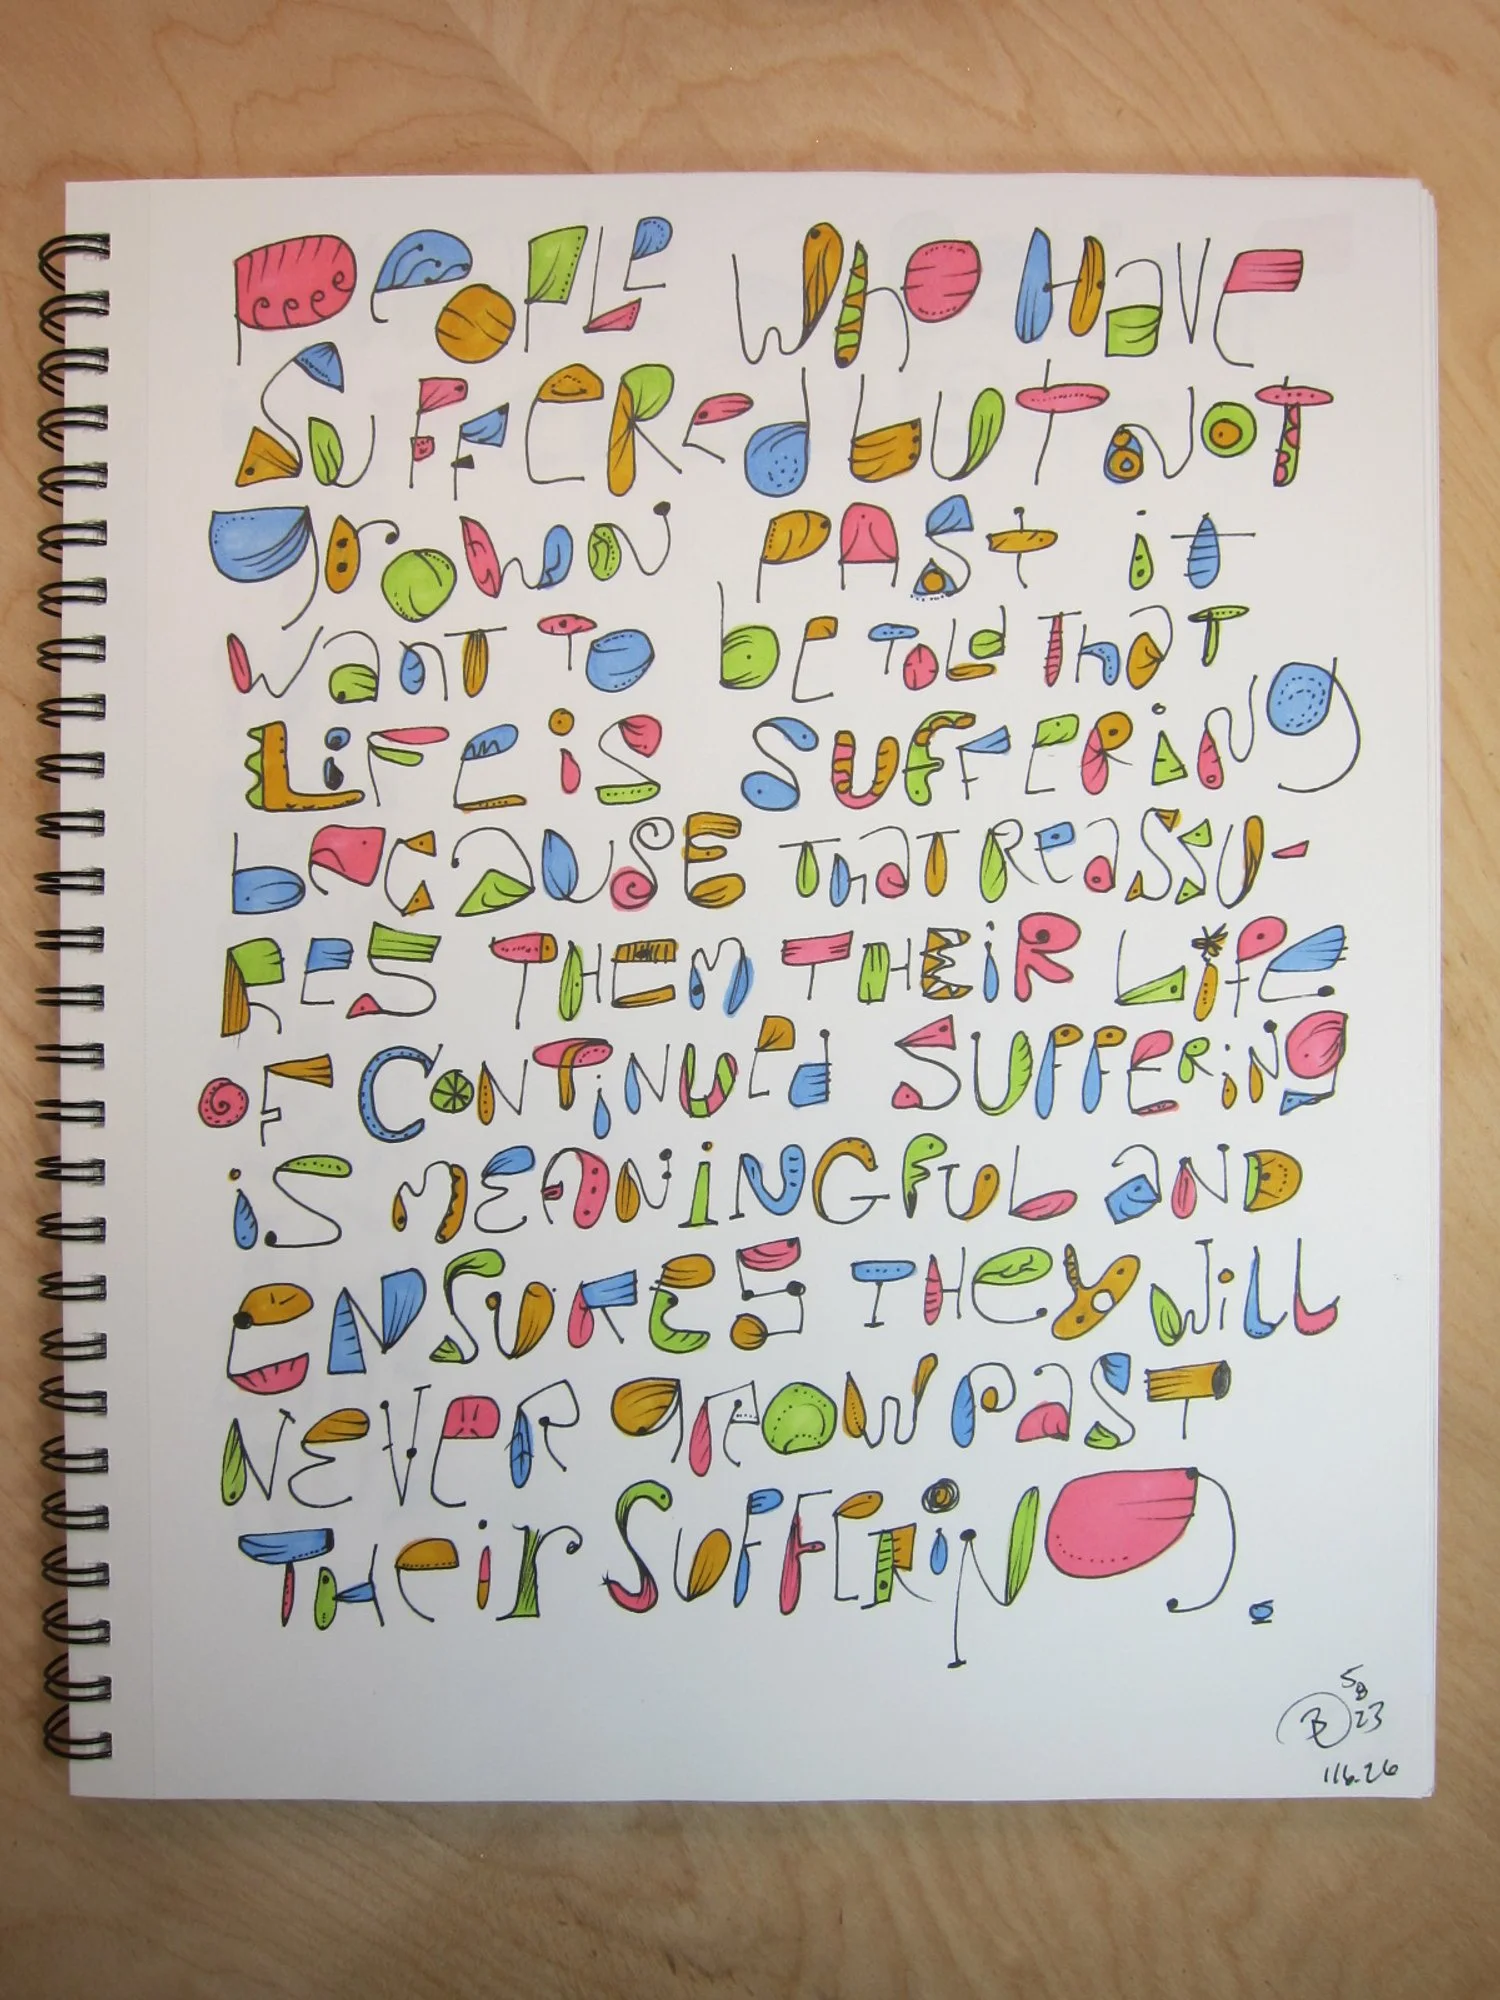 PEOPLE WHO HAVE
SUFFERED BUT NOT
GROWN PAST IT
WANT TO BE TOLD THAT
LIFE IS SUFFERING
BECAUSE THAT REASSU-
RES THEM THEIR LIFE
OF CONTINUED SUFFERING
IS MEANINGFUL AND
ENSURES THEY WILL
NEVER GROW PAST
THEIR SUFFERING.
SB
23
116.26